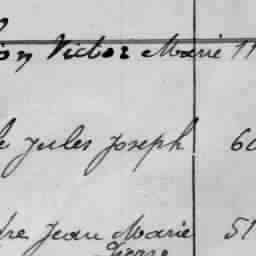 Victor Marie 11
Jules Joseph 60
Jean Marie 51
Pierre